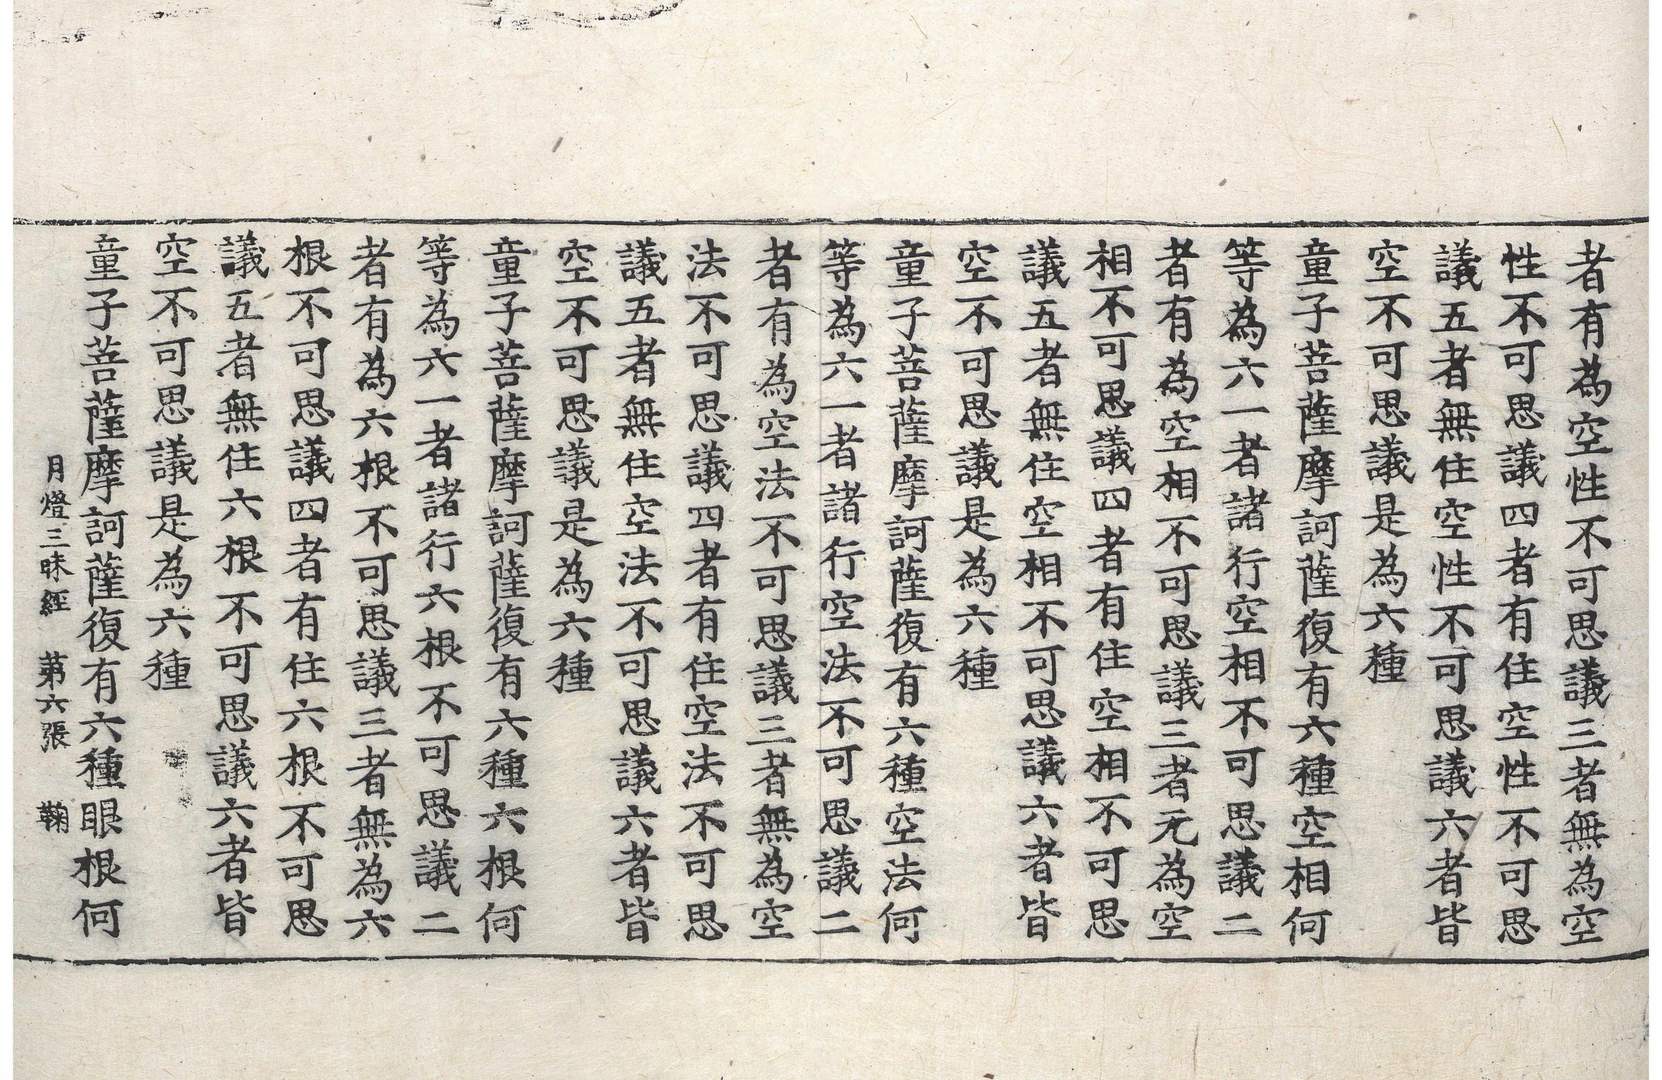 者有為空性不可思議三者無為空
性不可思議四者有住空性不可思
議五者無住空性不可思議六者皆
空不可思議是為六種
童子菩薩摩訶薩復有六種空相何
等為六一者諸行空相不可思議二
者有為空相不可思議三者元為空
相不可思議四者有住空相不可思
議五者無住空相不可思議六者皆
空不可思議是為六種
童子菩薩摩訶薩復有六種空法何
等為六一者諸行空法不可思議二
者有為空法不可思議三者無為空
法不可思議四者有住空法不可思
議五者無住空法不可思議六者皆
空不可思議是為六種
童子菩薩摩訶薩復有六種六根何
等為六一者諸行六根不可思議二
者有為六根不可思議三者無為六
根不可思議四者有住六根不可思
議五者無住六根不可思議六者皆
空不可思議是為六種
童子菩薩摩訶薩復有六種眼根何
月燈三昧經 第六張 鞠